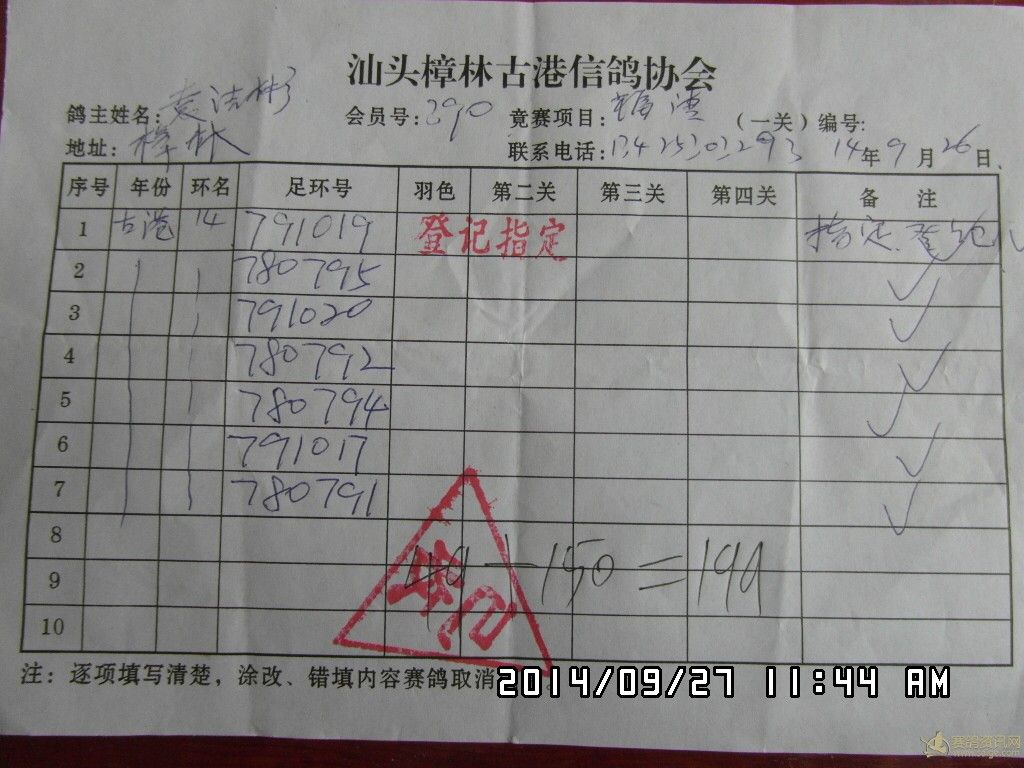 汕头樟林古港信鸽协会
鸽主姓名: 袁洁彬 会员号: 290 竞赛项目: (一关) 编号:
地址: 樟林 联系电话: 13425303293 14年9月26日.
序号 年份 环名 足环号 羽色 第二关 第三关 第四关 备 注
1 古港 14 791019 登记指定 指定
2 780795 ✓
3 791020 ✓
4 780792 ✓
5 780794 ✓
6 791017 ✓
7 780791 ✓
8
49+150=199
9
10
注: 逐项填写清楚, 涂改、错填内容赛鸽取消
2014/09/27 11:44 AM
赛鸽资讯网